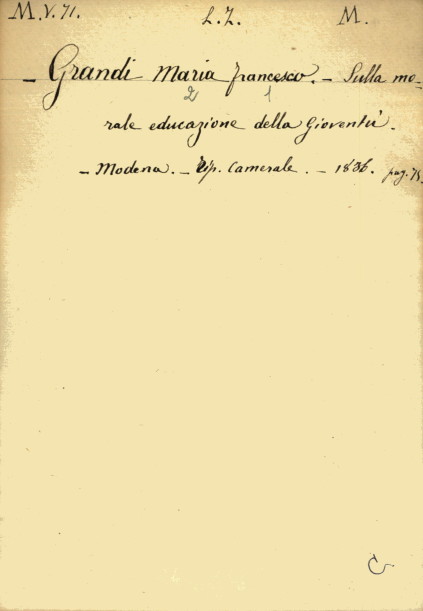 M.V.71. L.Z. M.
– Grandi Maria Francesco. – Sulla mo-
2 1
rale educazione della Gioventù.
– Modena. – Tip. Camerale. – 1836. pag. 75.
C